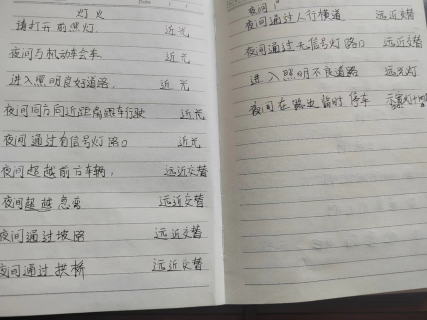 灯火
请打开前照灯. 近光
夜间与机动车会车. 近光
进入照明良好道路. 近光
夜间同方向近距离跟车行驶 近光
夜间通过有信号灯路口 近光
夜间超越前方车辆, 远近交替
夜间超越急弯 远近交替
夜间通过坡路 远近交替
夜间通过拱桥 远近交替
夜间通过人行横道 远近交替
夜间通过无信号灯路口 远近交替
进入照明不良道路 远光灯
夜间在路边临时停车